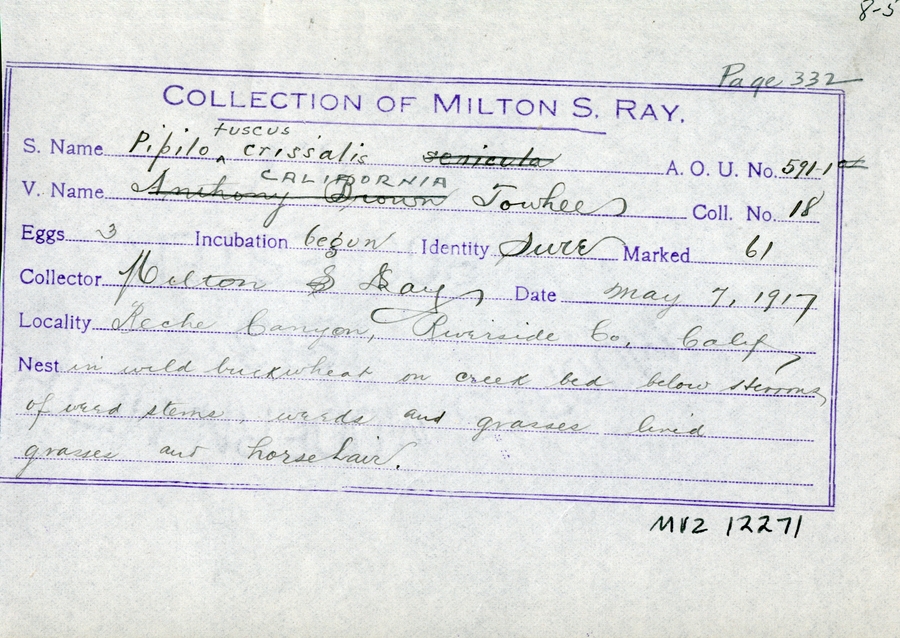 8-5
Page 332
COLLECTION OF MILTON S. RAY.
fuscus
S. Name Pipilo ^ crissalis senicula A. O. U. No. 591-1
CALIFORNIA
V. Name Anthony Brown Towhee Coll. No. 18
Eggs 3 Incubation begun Identity Sure Marked 61
Collector Milton S Ray Date May 7, 1917
Locality Reche Canyon, Riverside Co, Calif
Nest in wild buckwheat on creek bed below
of weed stems, weeds and grasses lined
grasses and horsehair.
MVZ 12271